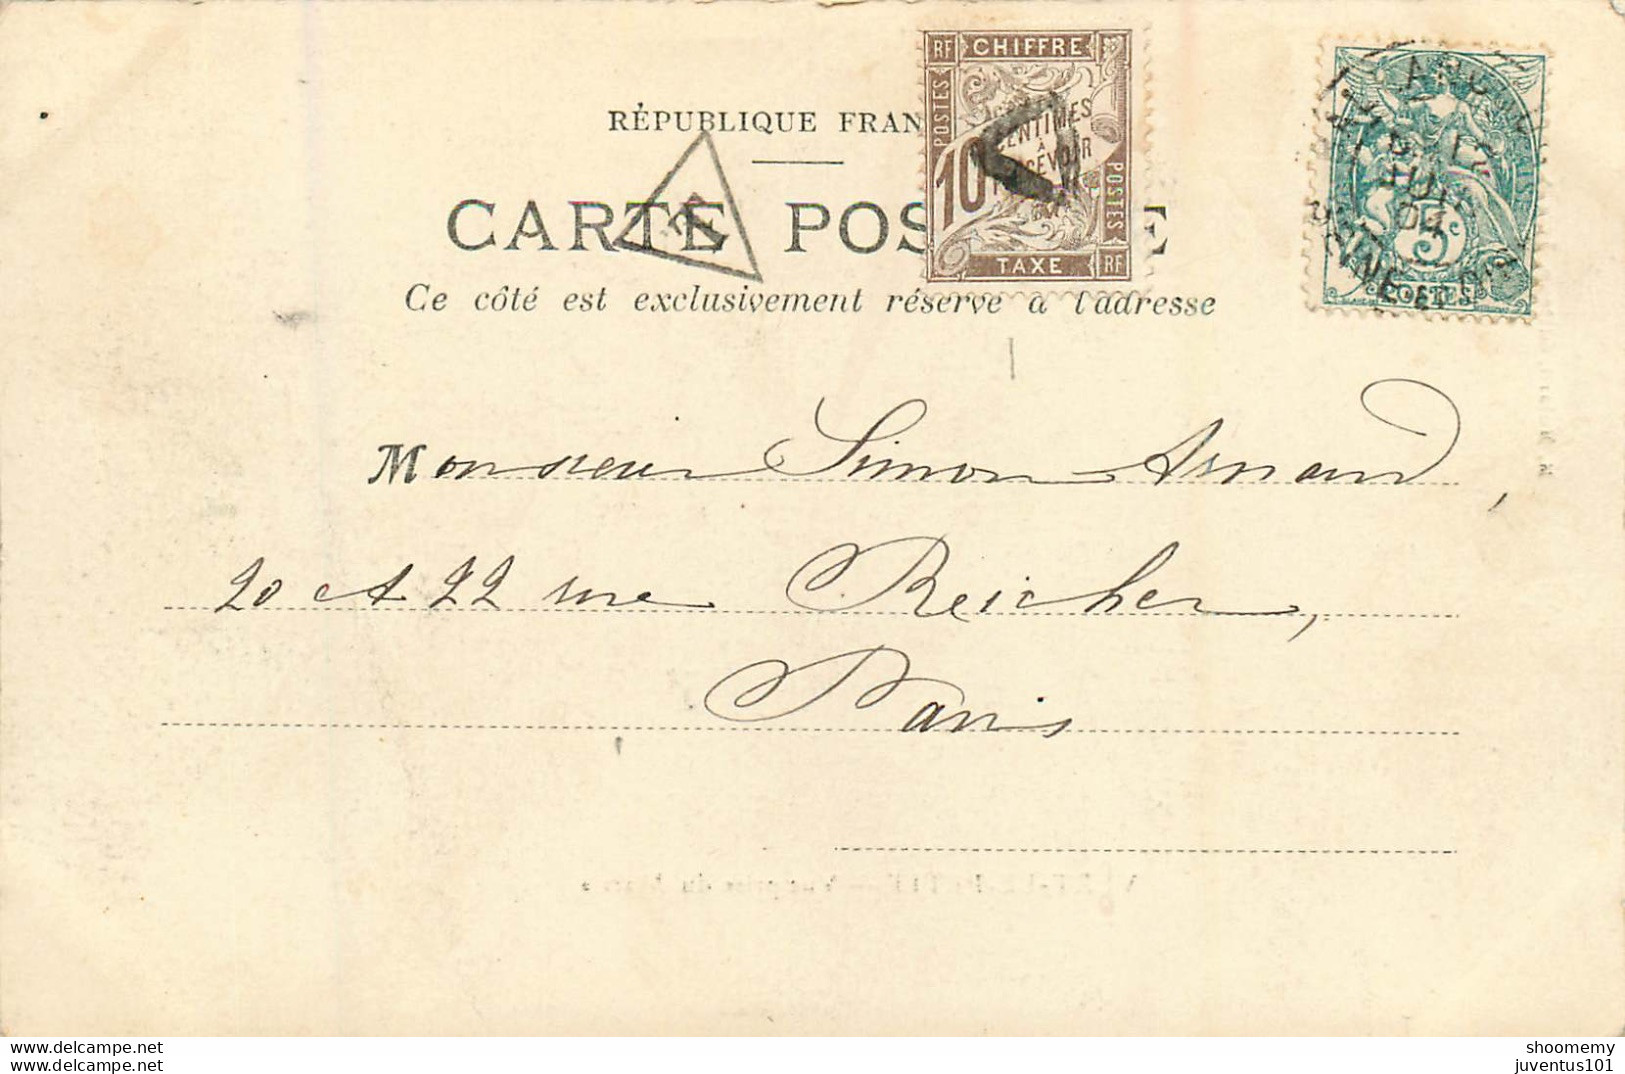 RÉPUBLIQUE FRAN
CARTE POS E
Ce côté est exclusivement réservé à l'adresse
RF CHIFFRE
POSTES
10
CENTIMES
À
PERCEVOIR
POSTES
TAXE RF
T
5c
POSTES
JUIL
04
SEINE ET
Monsieur Simon Arnaud,
20 et 22 rue Reicher,
Paris
delcampe.net
The collector's marketplace
shoomemy
juventus101